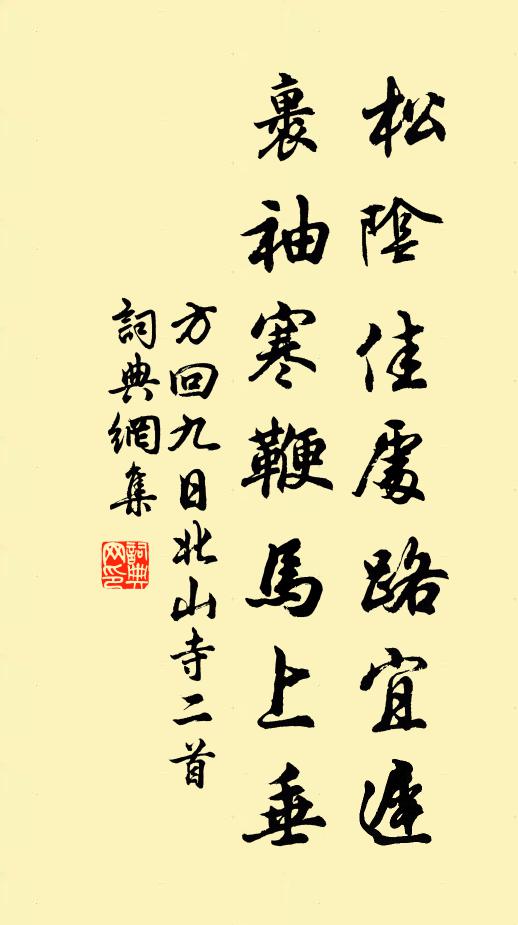 松陰佳處路宜遲
裹袖寒鞭馬上垂
方回九日北山寺二首
詞典網集
詞典網印